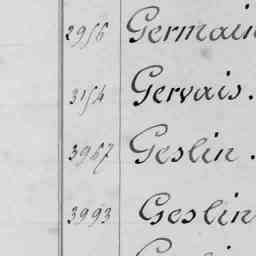 2956 Germain
3154 Gervais.
3967 Geslin.
3993 Geslin